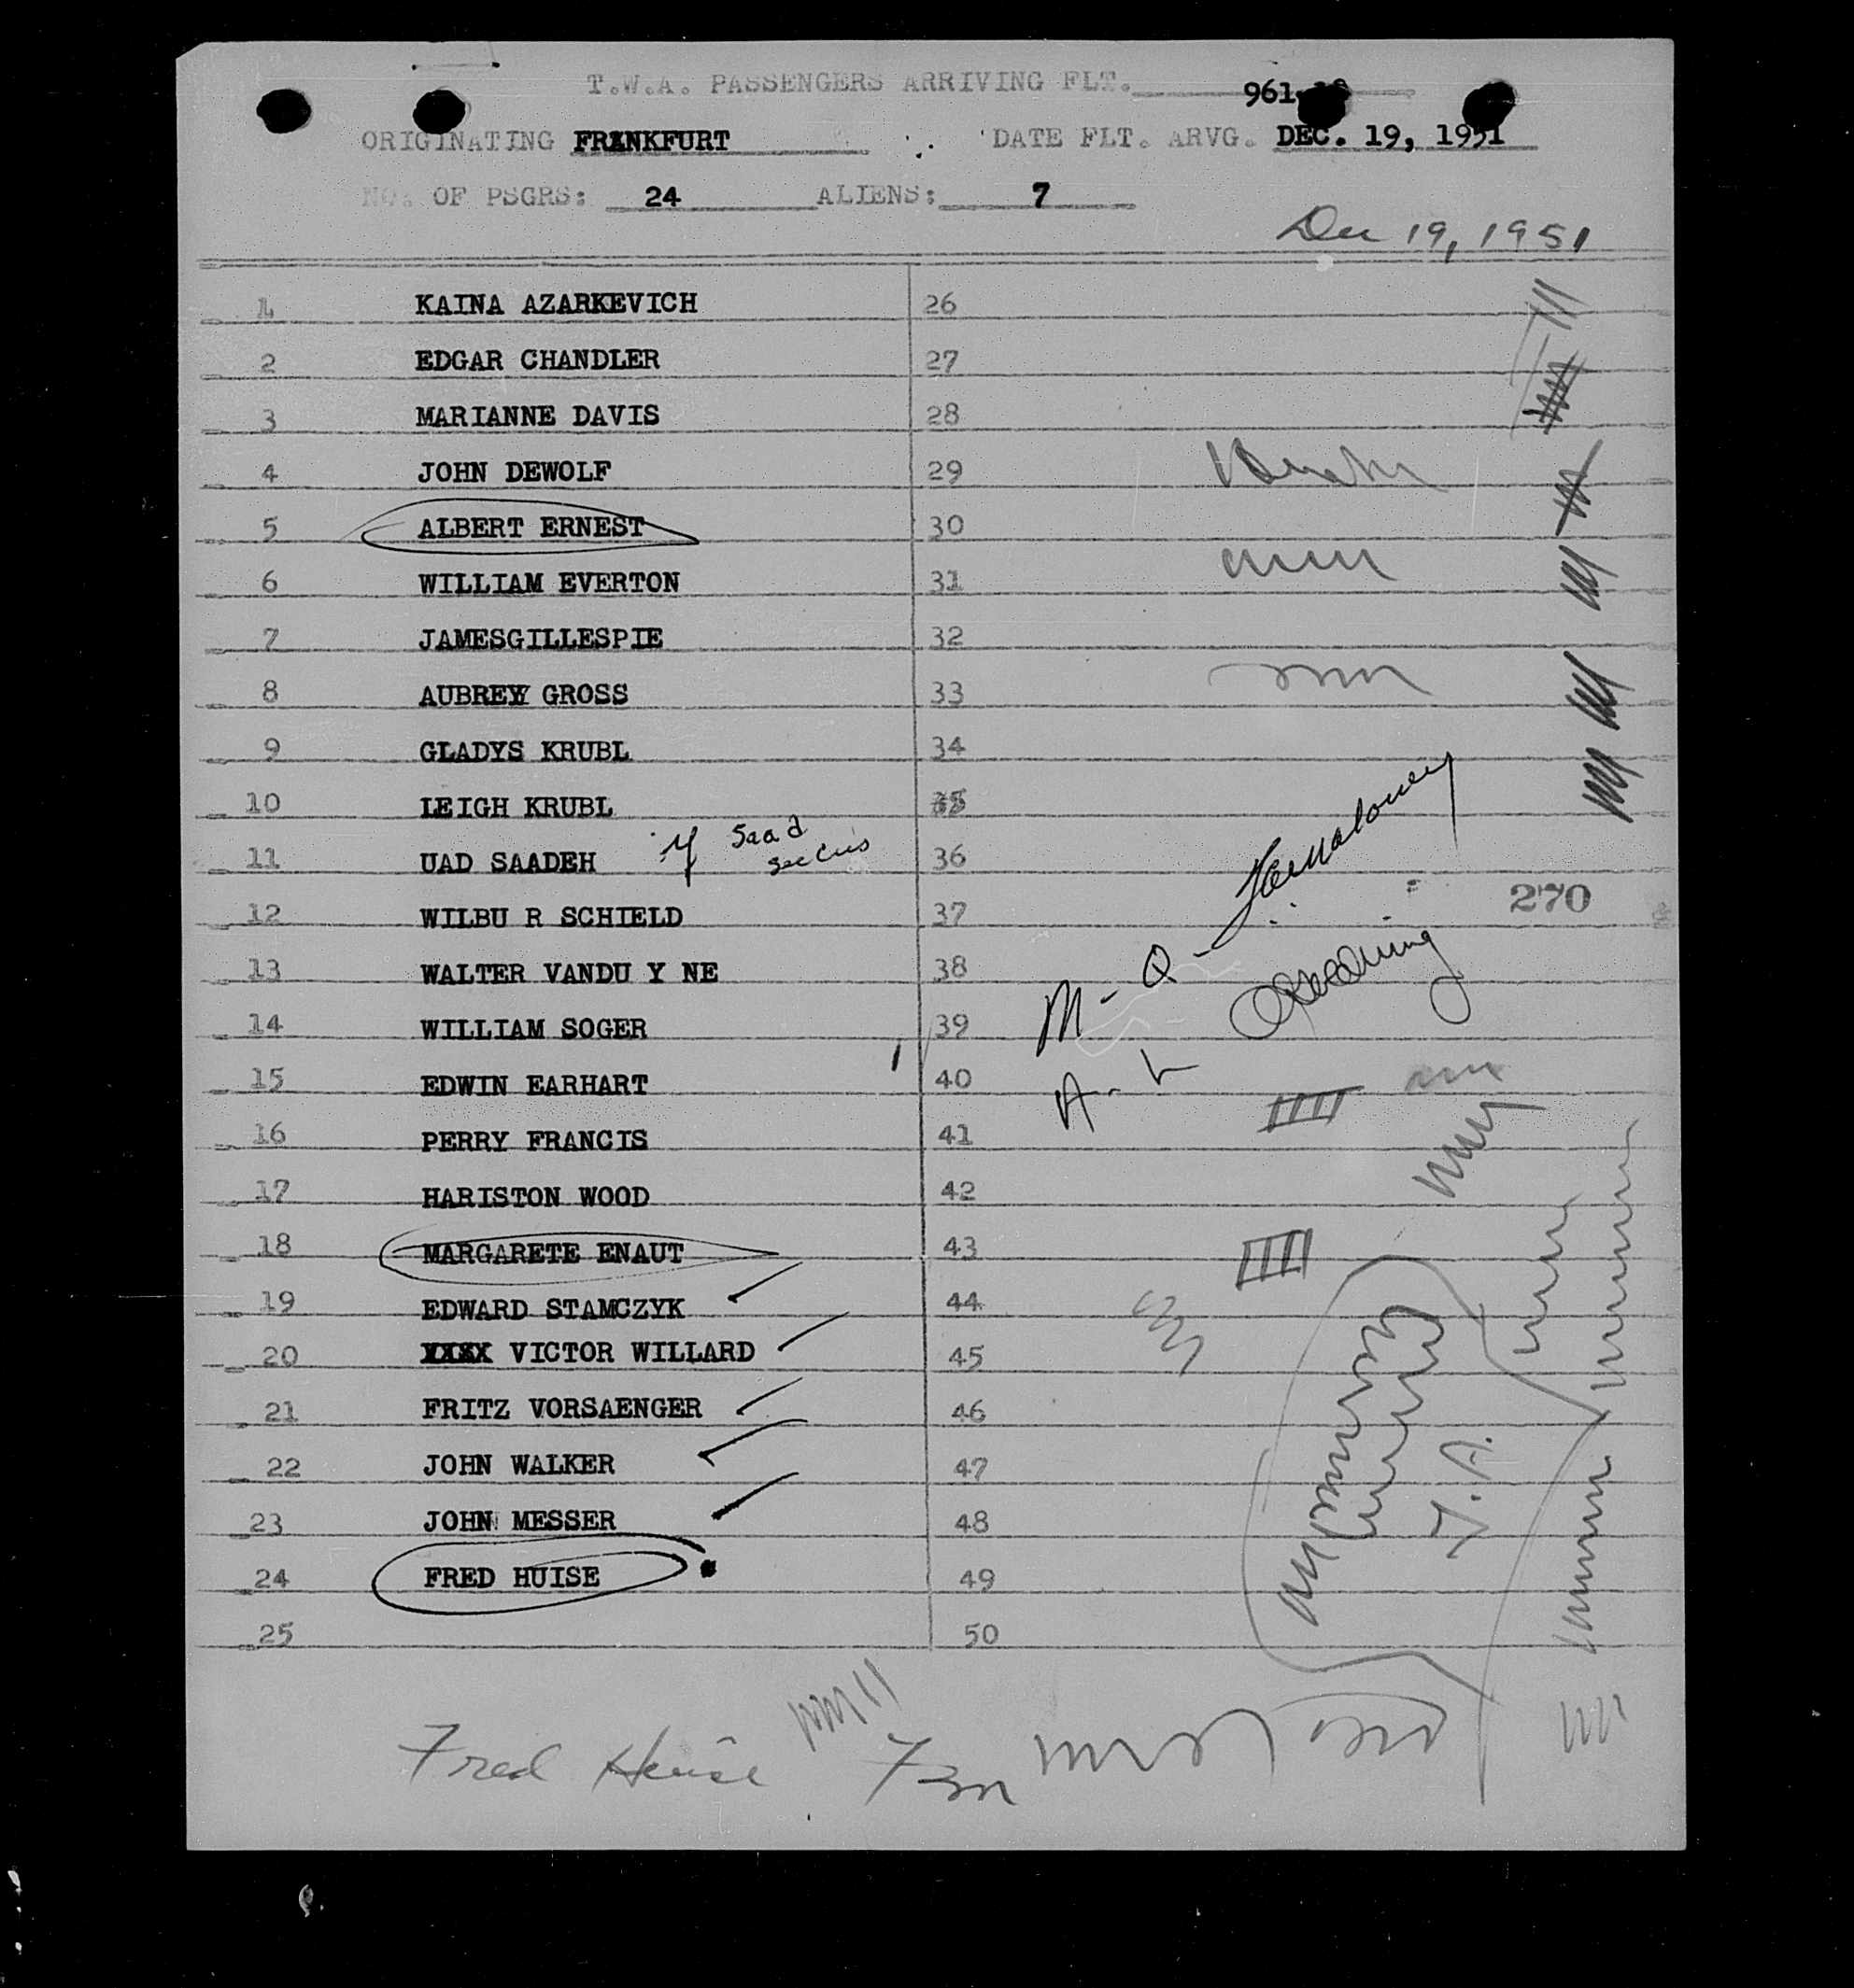 T.W.A. PASSENGERS ARRIVING FLT. 961-
ORIGINATING FRANKFURT DATE FLT. ARVG. DEC. 19, 1951
NO. OF PSGRS: 24 ALIENS: 7
Dec 19, 1951
1 KAINA AZARKEVICH 26
2 EDGAR CHANDLER 27
3 MARIANNE DAVIS 28
4 JOHN DEWOLF 29
5 ALBERT ERNEST 30
6 WILLIAM EVERTON 31
7 JAMESGILLESPIE 32
8 AUBREY GROSS 33
9 GLADYS KRUBL 34
10 LEIGH KRUBL 35
11 UAD SAADEH Saad 36
12 WILBU R SCHIELD 37 270
13 WALTER VANDU Y NE 38 M - Q -
14 WILLIAM SOGER 39
15 EDWIN EARHART 40 A - L
16 PERRY FRANCIS 41
17 HARISTON WOOD 42
18 MARGARETE ENAUT 43
19 EDWARD STAMCZYK 44
20 XXXX VICTOR WILLARD 45
21 FRITZ VORSAENGER 46
22 JOHN WALKER 47
23 JOHN MESSER 48
24 FRED HUISE 49
25 50
Fred Huise